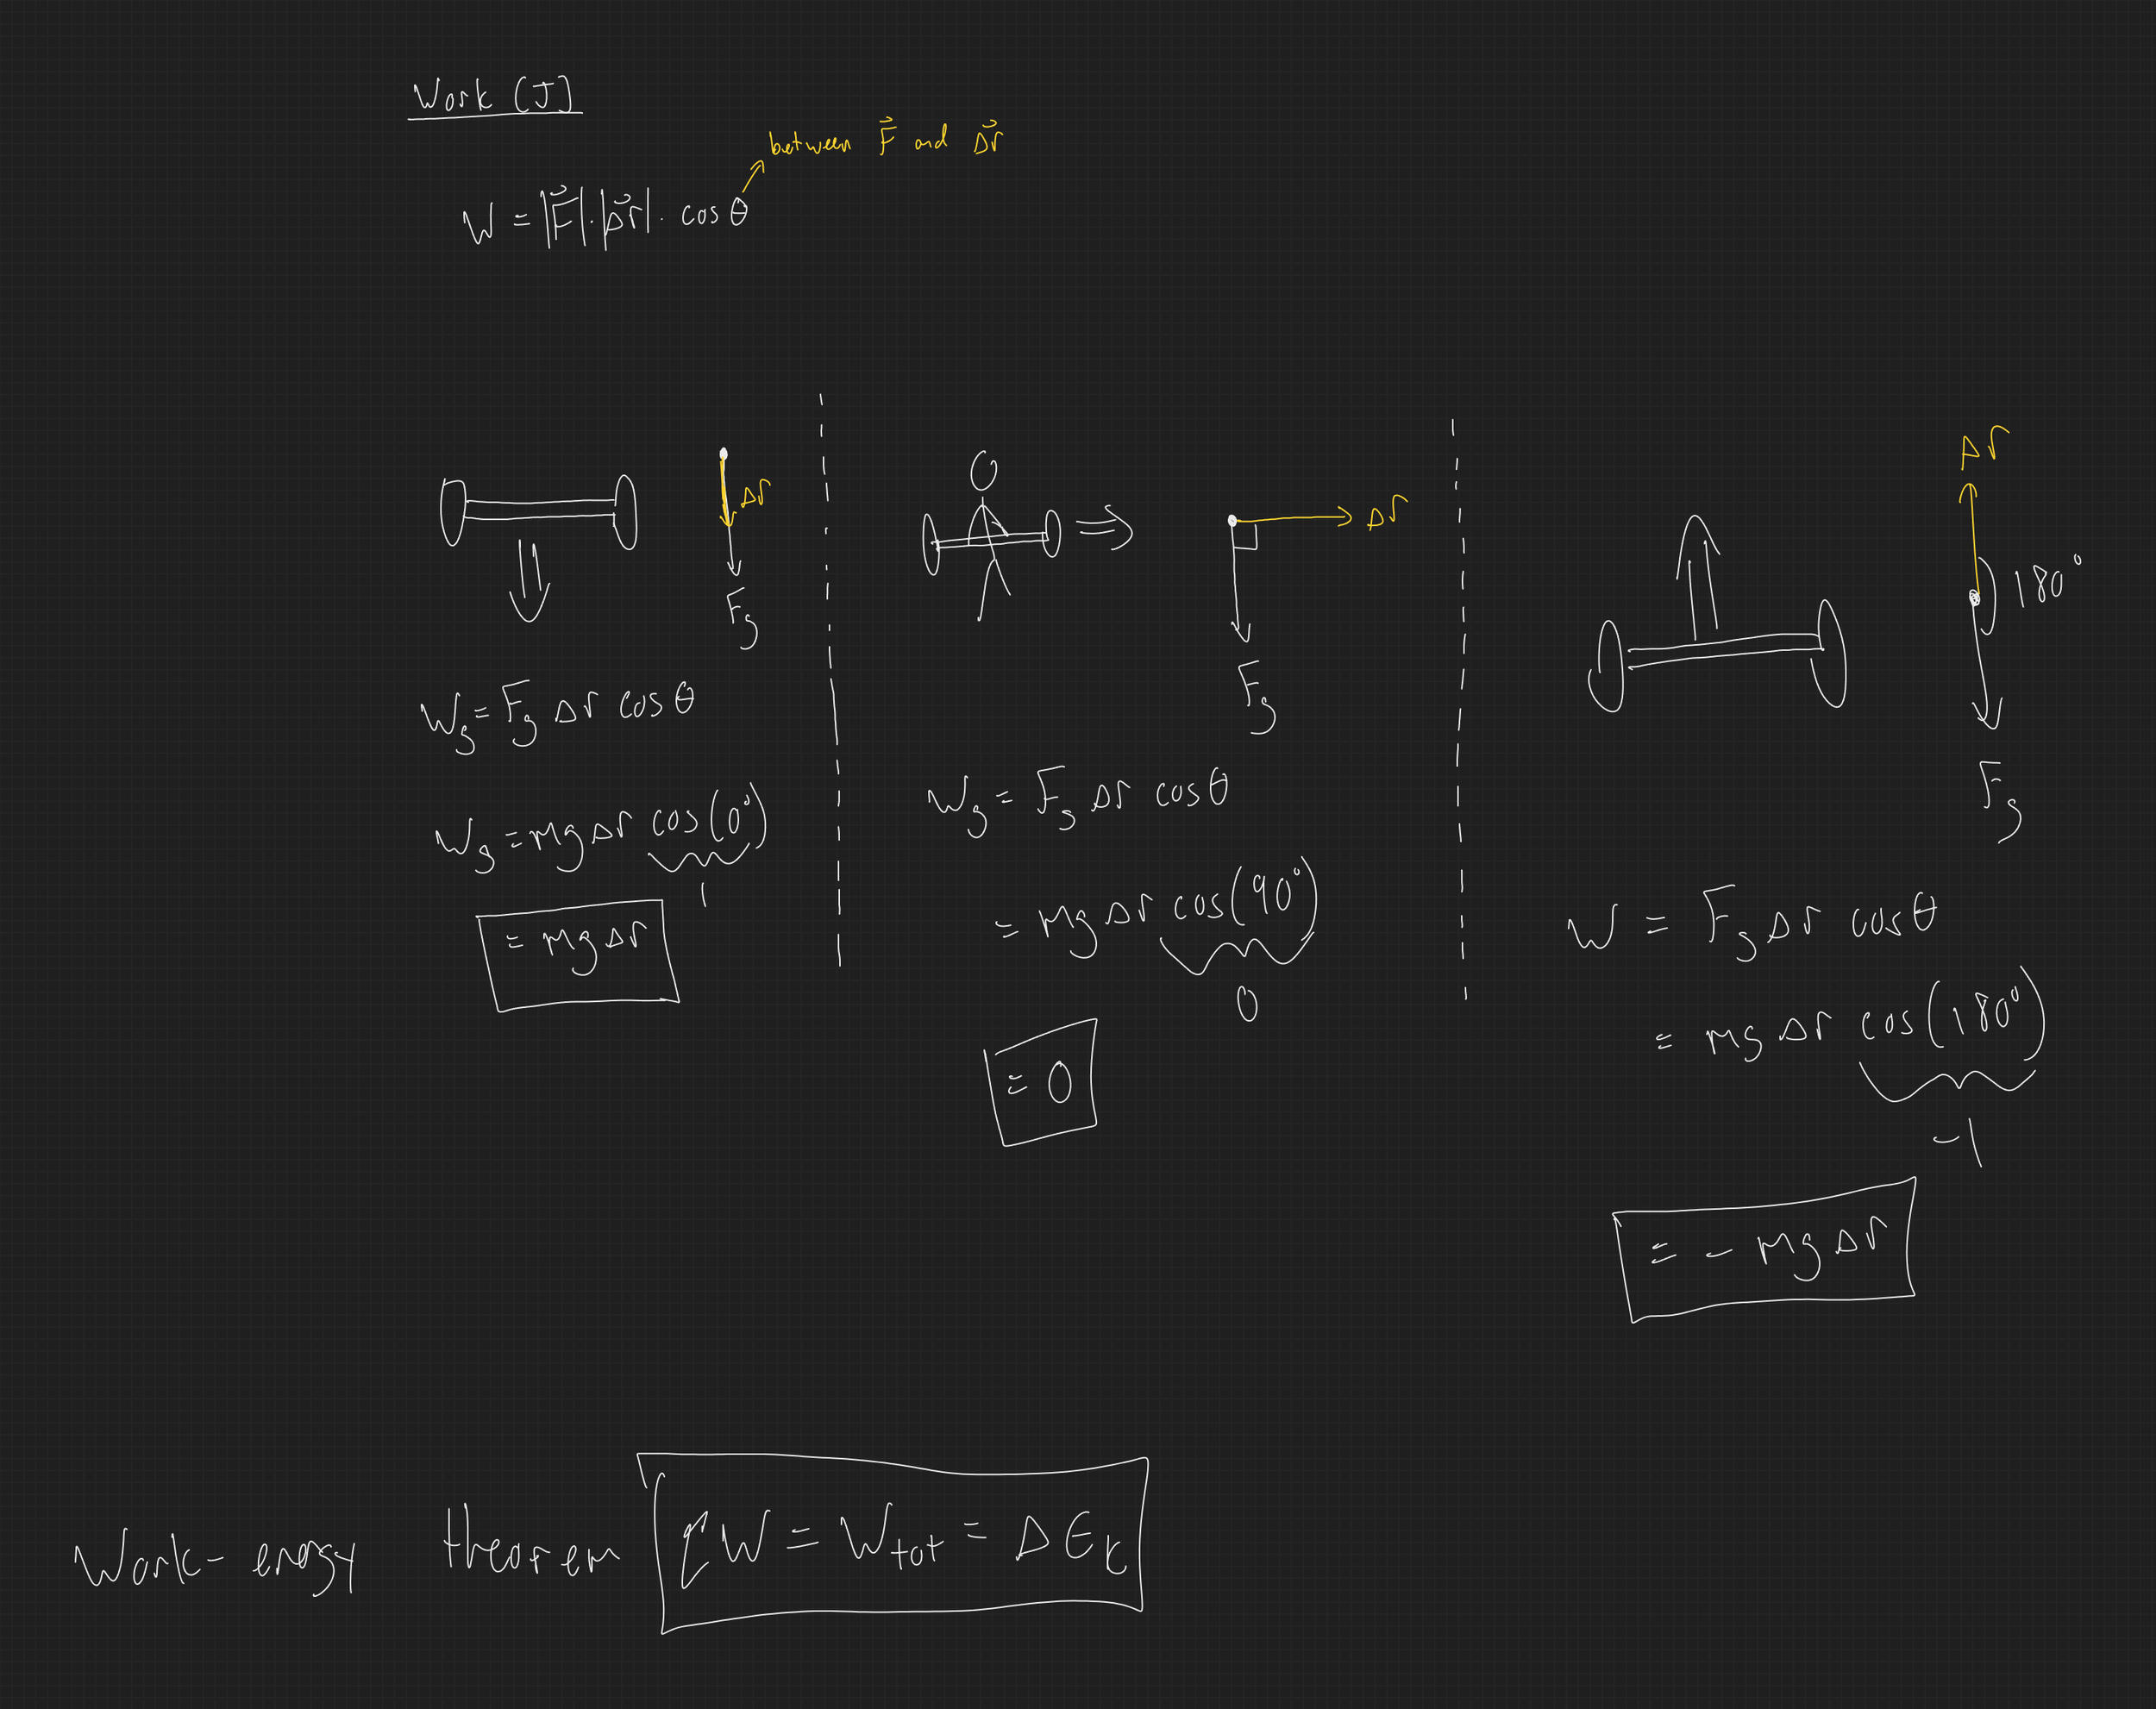 Work (J)
between F⃗ and Δr⃗
W = |F⃗| · |Δr⃗| · cos θ
Δr
Fg
Wg = Fg Δr cos θ
Wg = mg Δr cos(0°)
1
= mg Δr
Δr
Fg
Wg = Fg Δr cos θ
= mg Δr cos(90°)
0
= 0
Δr
180°
Fg
W = Fg Δr cos θ
= mg Δr cos(180°)
-1
= - mg Δr
Work-energy theorem ΣW = Wtot = ΔEk